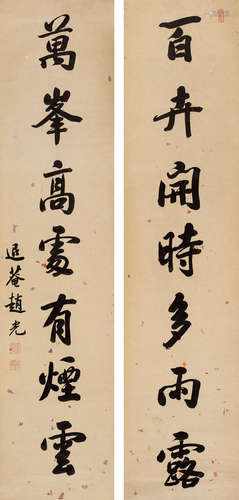 百卉開時多雨露
萬峯高處有煙雲
退菴趙光